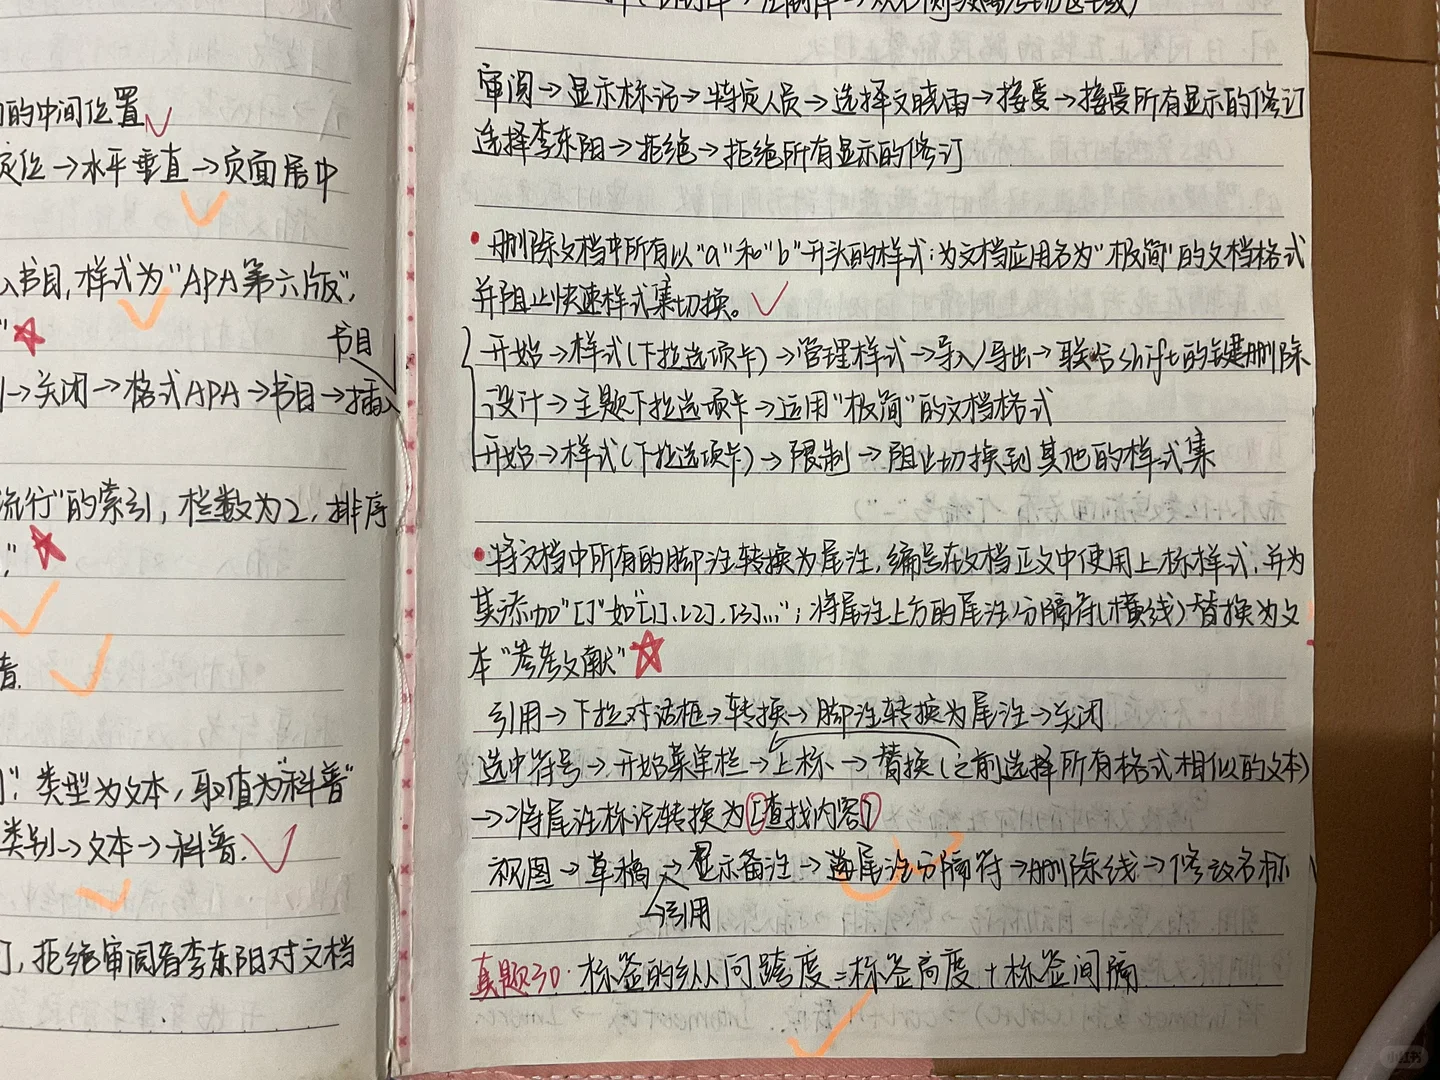 的中间位置
定位→水平垂直→页面居中
书目,样式为"APA第六版",
"
书目
→关闭→格式APA→书目→插入
流行"的索引,栏数为2,排序
"
着.
":类型为文本,取值为"科普"
类别→文本→科普.
订,拒绝审阅者李东阳对文档
审阅→显示标记→特定人员→选择文晓雨→接受→接受所有显示的修订
选择李东阳→拒绝→拒绝所有显示的修订
·删除文档中所有以"a"和"b"开头的样式;为文档应用名为"极简"的文档格式
并阻止快速样式集切换。
开始→样式(下拉选项卡)→管理样式→导入/导出→联合shift的键删除
设计→主题下拉选项卡→运用"极简"的文档格式
开始→样式(下拉选项卡)→限制→阻止切换到其他的样式集
·将文档中所有的脚注转换为尾注,编号在文档正文中使用上标样式,并为
其添加"[]"如"[1],[2],[3]...";将尾注上方的尾注分隔符(横线)替换为文
本"参考文献"
引用→下拉对话框→转换→脚注转换为尾注→关闭
选中符号→开始菜单栏→上标→替换(之前选择所有格式相似的文本)
→将尾注标记转换为[查找内容]
视图→草稿→显示备注→尾注分隔符→删除线→修改名称
引用
真题30.标签的纵向跨度=标签高度+标签间隔
小红书